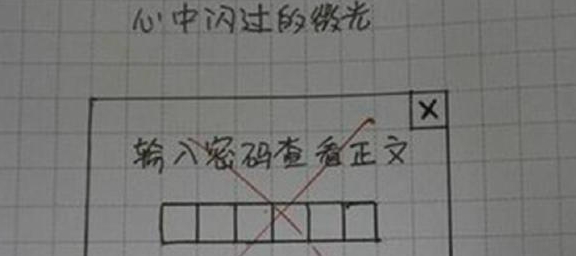 心中闪过的微光
X
输入密码查看正文